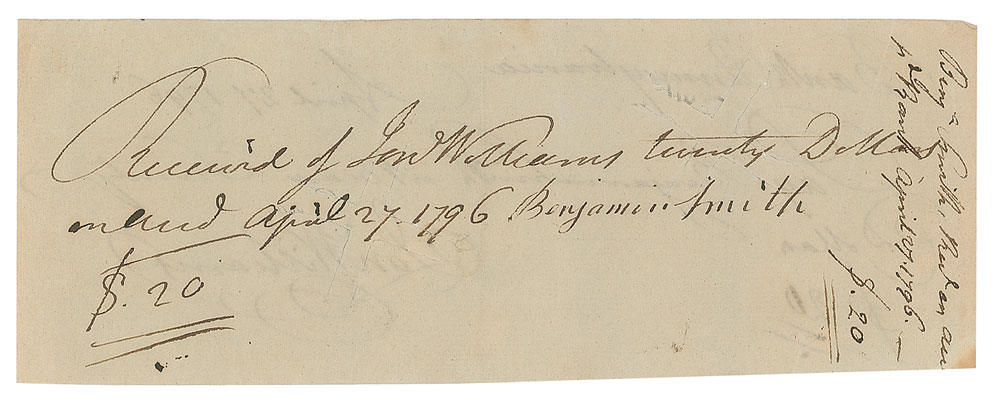 Receivd of Jonn Williams twenty Dollars
on accn April 27. 1796 Benjamin Smith
$. 20
Benjn Smith, Rect on
Bank April 27. 1796.
$. 20